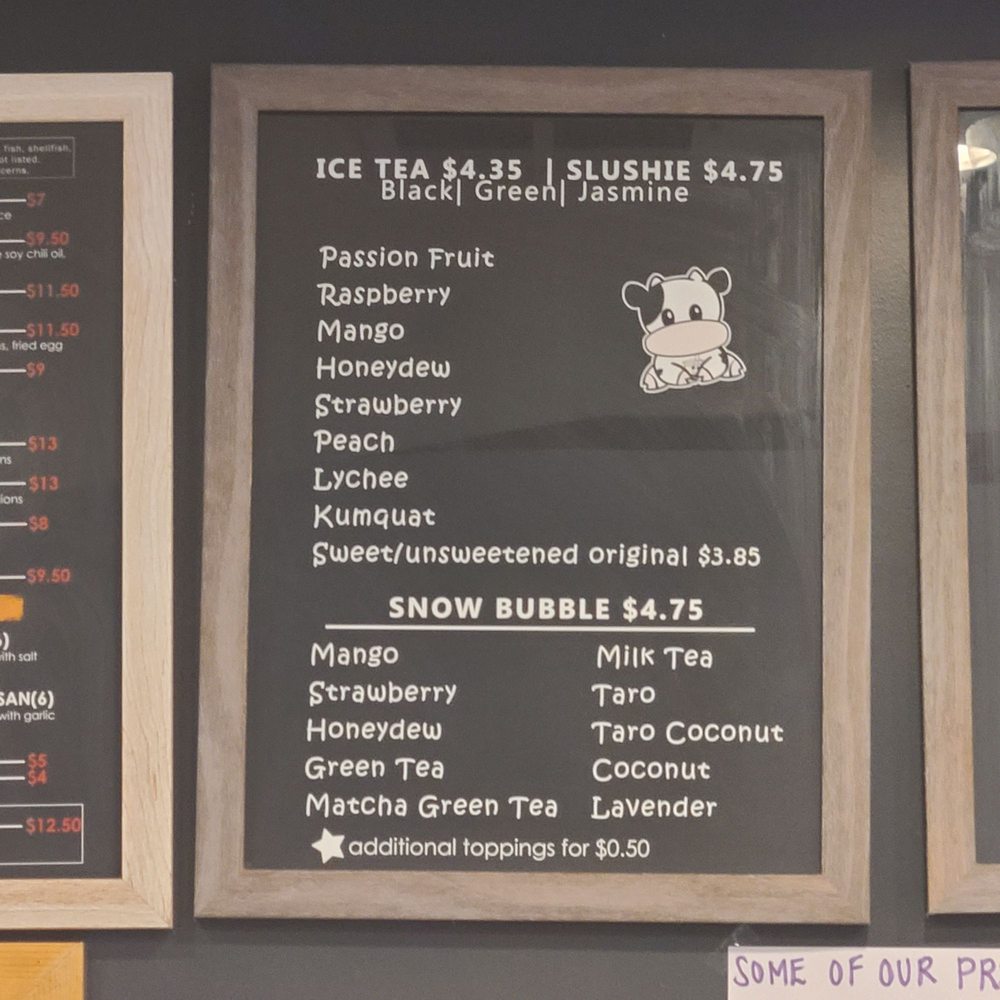 fish, shellfish,
ot listed.
cerns.
$7
ce
$9.50
soy chili oil,
$11.50
$11.50
s, fried egg
$9
$13
ns
$13
ions
$8
$9.50
)
ith salt
SAN(6)
with garlic
$5
$4
$12.50
ICE TEA $4.35 | SLUSHIE $4.75
Black| Green| Jasmine
Passion Fruit
Raspberry
Mango
Honeydew
Strawberry
Peach
Lychee
Kumquat
Sweet/unsweetened original $3.85
SNOW BUBBLE $4.75
Mango
Strawberry
Honeydew
Green Tea
Matcha Green Tea
Milk Tea
Taro
Taro Coconut
Coconut
Lavender
additional toppings for $0.50
SOME OF OUR PR